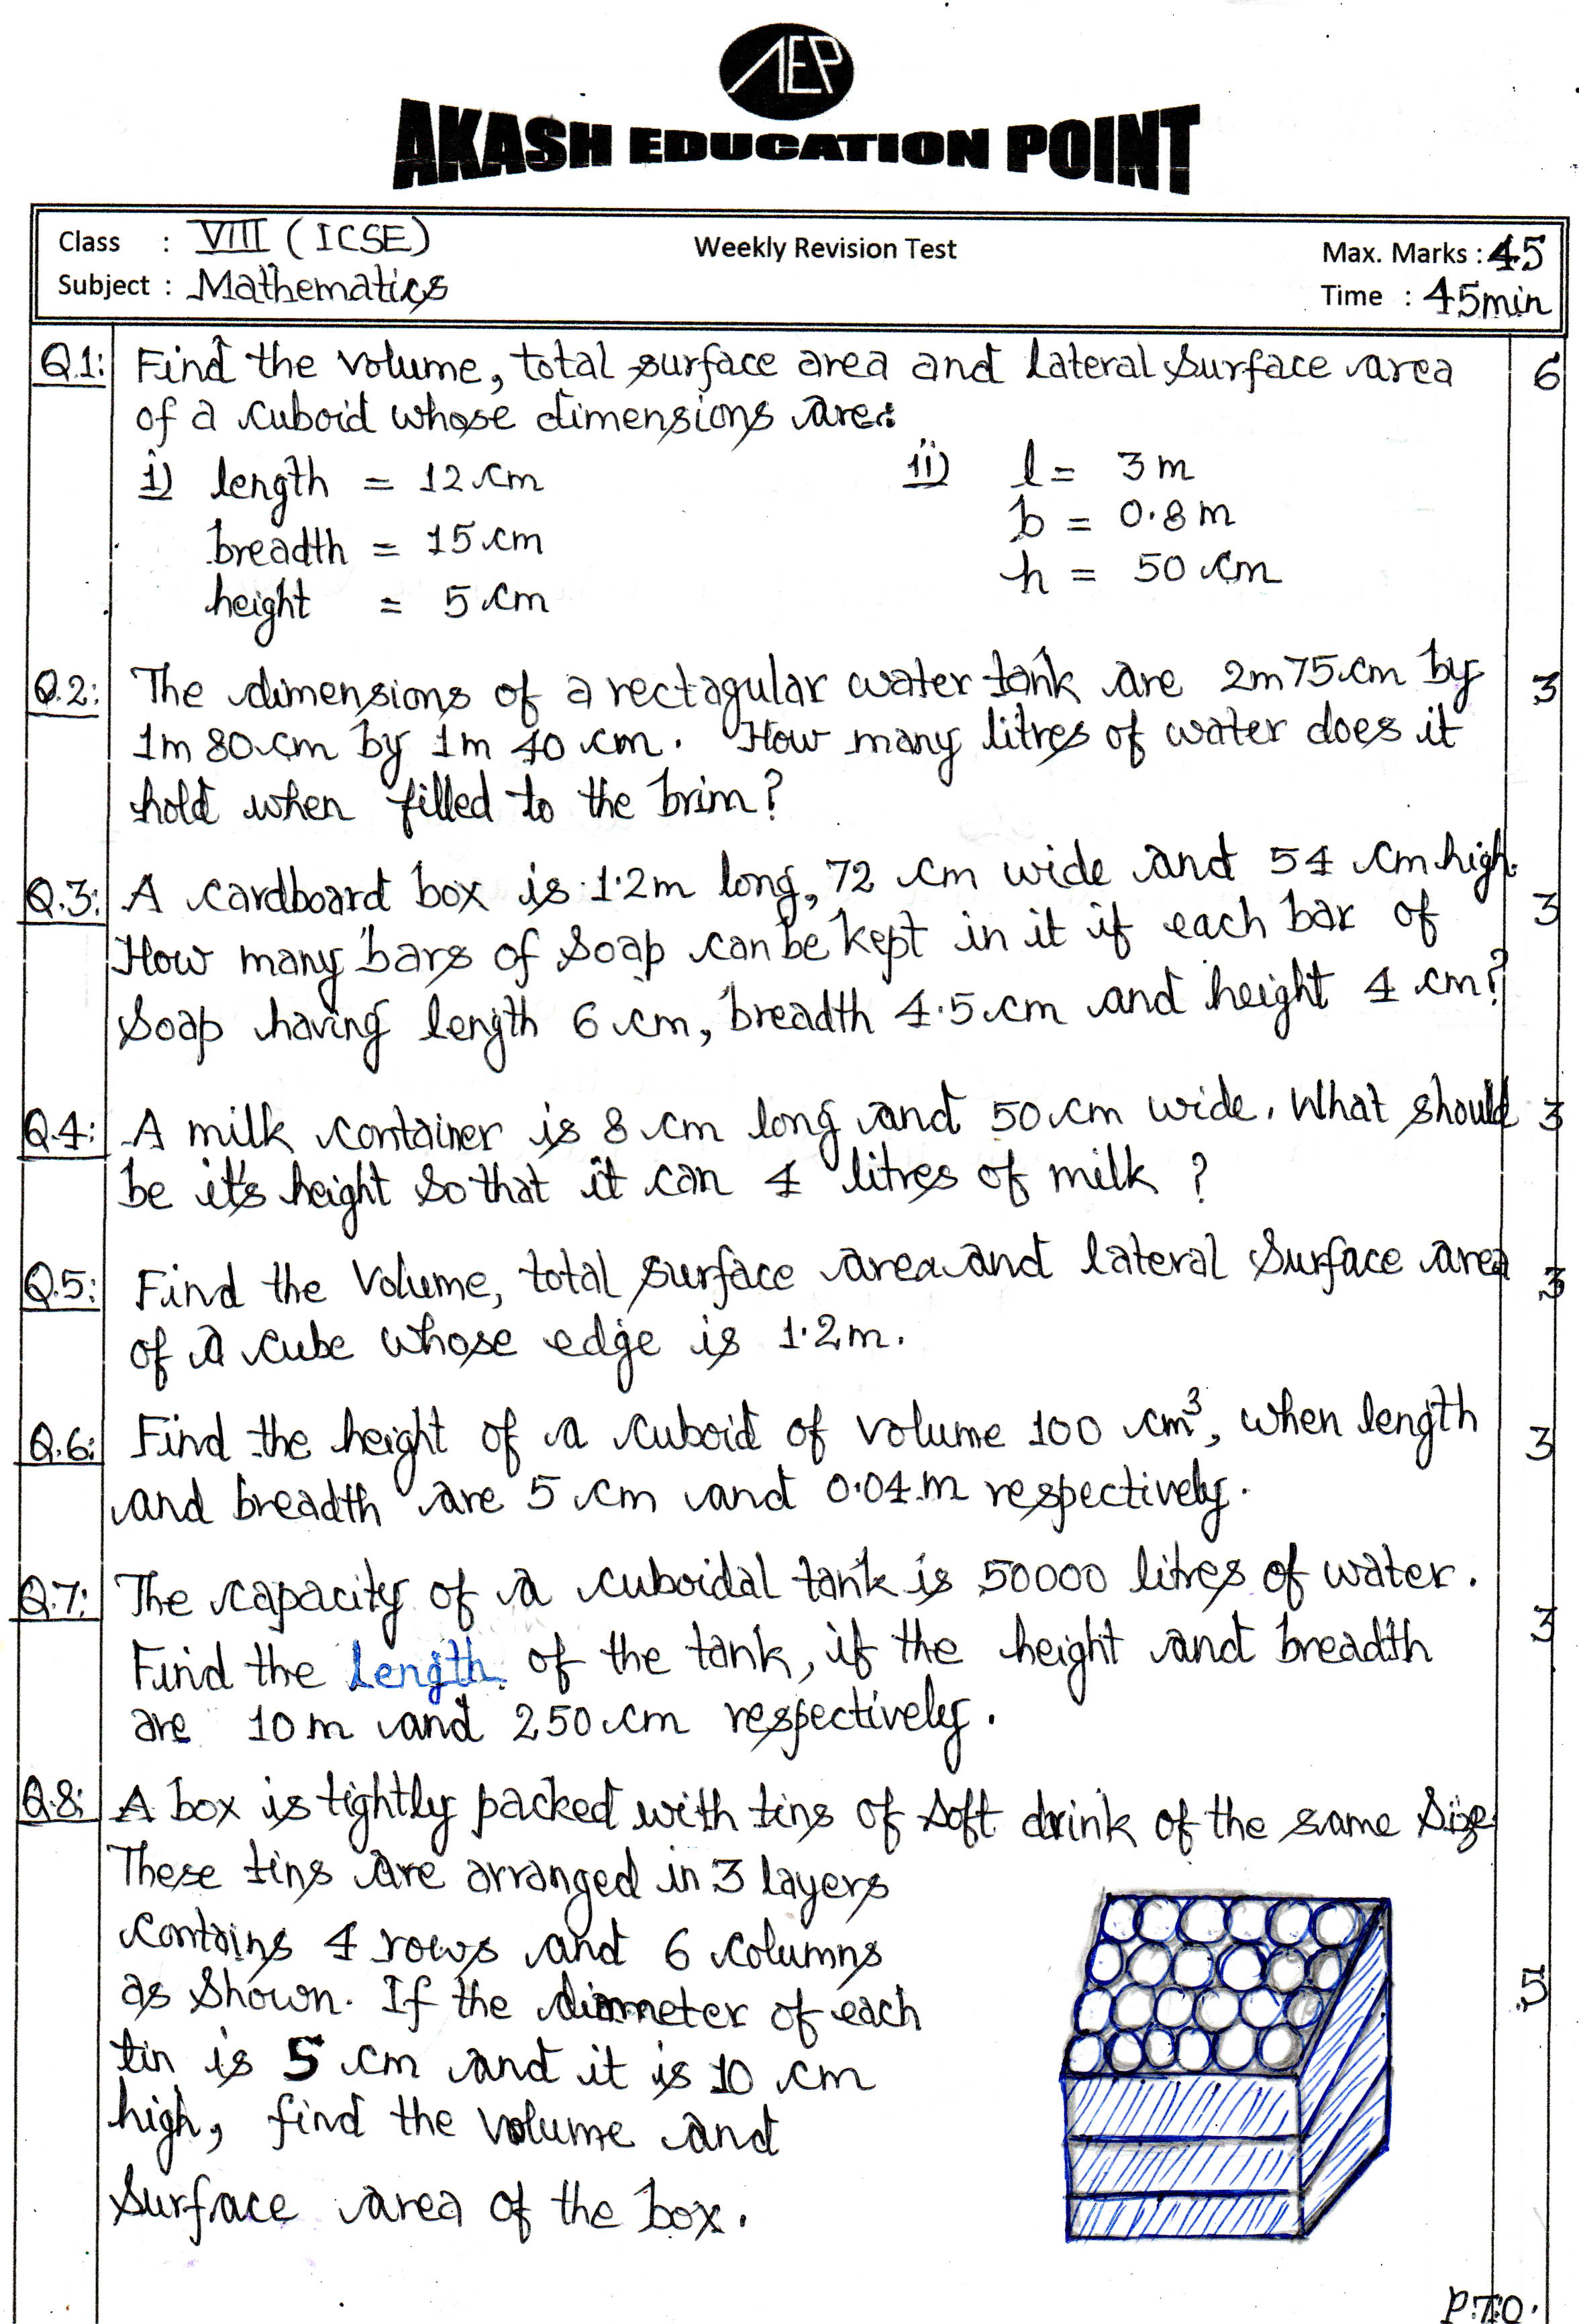 AEP
AKASH EDUCATION POINT
Class : VIII (ICSE)
Weekly Revision Test
Max. Marks : 45
Subject : Mathematics
Time : 45min
Q.1: Find the volume, total surface area and lateral surface area 6
of a cuboid whose dimensions are:
i) length = 12 cm
breadth = 15 cm
height = 5 cm
ii) l = 3 m
b = 0.8 m
h = 50 cm
Q.2: The dimensions of a rectagular water tank are 2m 75 cm by 3
1m 80 cm by 1m 40 cm. How many litres of water does it
hold when filled to the brim?
Q.3: A cardboard box is 1.2m long, 72 cm wide and 54 cm high. 3
How many bars of soap can be kept in it if each bar of
soap having length 6 cm, breadth 4.5 cm and height 4 cm?
Q.4: A milk container is 8 cm long and 50 cm wide. What should 3
be it's height so that it can 4 litres of milk ?
Q.5: Find the volume, total surface area and lateral surface area 3
of a cube whose edge is 1.2m.
Q.6: Find the height of a cuboid of volume 100 cm³, when length 3
and breadth are 5 cm and 0.04 m respectively.
Q.7: The capacity of a cuboidal tank is 50000 litres of water. 3
Find the length of the tank, if the height and breadth
are 10 m and 250 cm respectively.
Q.8: A box is tightly packed with tins of soft drink of the same size.
These tins are arranged in 3 layers
contains 4 rows and 6 columns
as shown. If the diameter of each 5
tin is 5 cm and it is 10 cm
high, find the volume and
surface area of the box.
P.T.O.